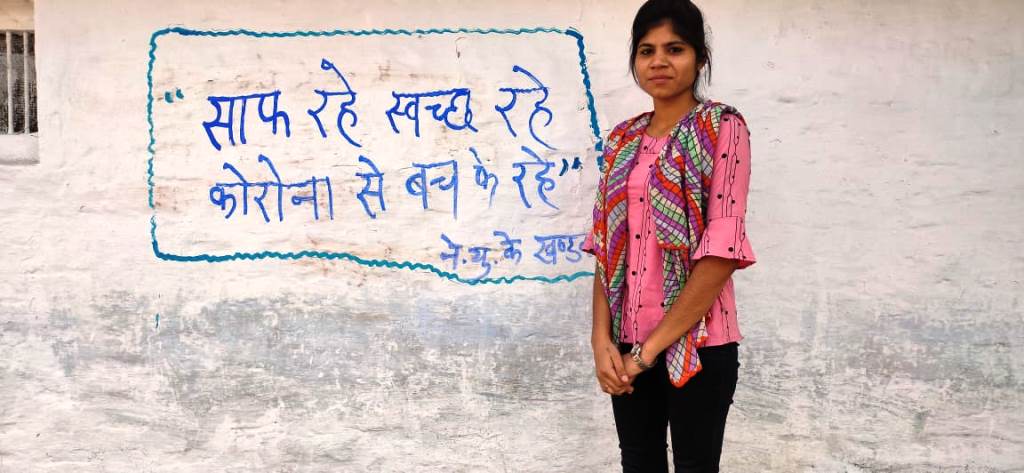 “साफ रहे स्वच्छ रहे
कोरोना से बच के रहे”
ने.यु.के खण्ड